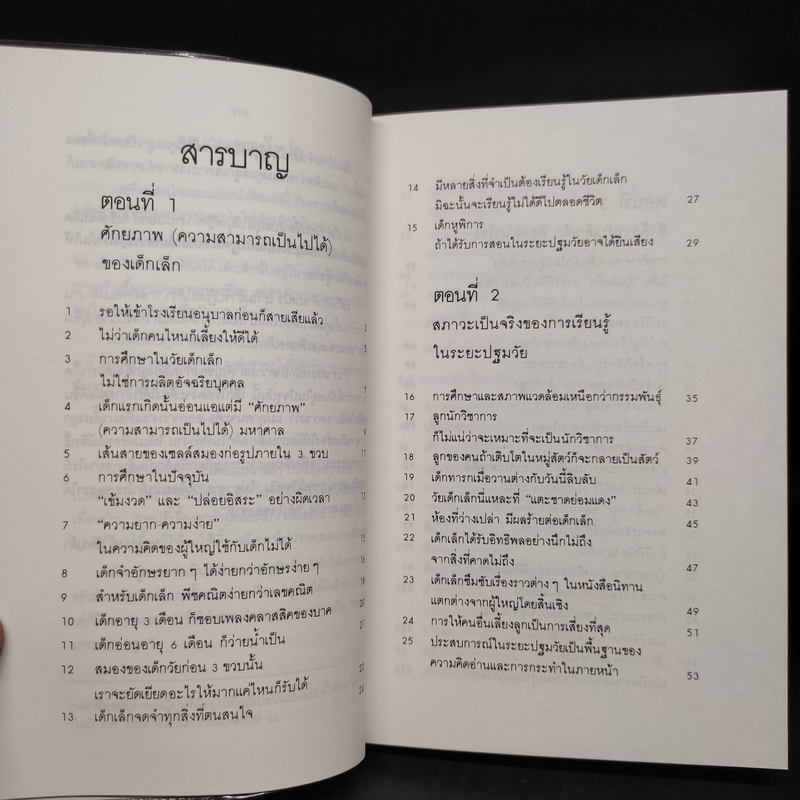 สารบาญ
ตอนที่ 1
ศักยภาพ (ความสามารถเป็นไปได้)
ของเด็กเล็ก
1 รอให้เข้าโรงเรียนอนุบาลก่อนก็สายเสียแล้ว 3
2 ไม่ว่าเด็กคนไหนก็เลี้ยงให้ดีได้ 5
3 การศึกษาในวัยเด็กเล็ก
ไม่ใช่การผลิตอัจฉริยบุคคล 7
4 เด็กแรกเกิดนั้นอ่อนแอแต่มี “ศักยภาพ”
(ความสามารถเป็นไปได้) มหาศาล 9
5 เส้นสายของเซลล์สมองก่อรูปภายใน 3 ขวบ 11
6 การศึกษาในปัจจุบัน
“เข้มงวด” และ “ปล่อยอิสระ” อย่างผิดเวลา 13
7 “ความยาก-ความง่าย”
ในความคิดของผู้ใหญ่ใช้กับเด็กไม่ได้ 15
8 เด็กจำอักษรยาก ๆ ได้ง่ายกว่าอักษรง่าย ๆ 16
9 สำหรับเด็กเล็ก พีชคณิตง่ายกว่าเลขคณิต 18
10 เด็กอายุ 3 เดือน ก็ชอบเพลงคลาสสิคของบาค 20
11 เด็กอ่อนอายุ 6 เดือน ก็ว่ายน้ำเป็น 21
12 สมองของเด็กวัยก่อน 3 ขวบนั้น
เราจะยัดเยียดอะไรให้มากแค่ไหนก็รับได้
13 เด็กเล็กจดจำทุกสิ่งที่ตนสนใจ
14 มีหลายสิ่งที่จำเป็นต้องเรียนรู้ในวัยเด็กเล็ก
มิฉะนั้นจะเรียนรู้ไม่ได้ดีไปตลอดชีวิต 27
15 เด็กหูพิการ
ถ้าได้รับการสอนในระยะปฐมวัยอาจได้ยินเสียง 29
ตอนที่ 2
สภาวะเป็นจริงของการเรียนรู้
ในระยะปฐมวัย
16 การศึกษาและสภาพแวดล้อมเหนือกว่ากรรมพันธุ์ 35
17 ลูกนักวิชาการ
ก็ไม่แน่ว่าจะเหมาะที่จะเป็นนักวิชาการ 37
18 ลูกของคนถ้าเติบโตในหมู่สัตว์ก็จะกลายเป็นสัตว์ 39
19 เด็กทารกเมื่อวานต่างกับวันนี้ลิบลับ 41
20 วัยเด็กเล็กนี่แหละที่ “แตะชาดย่อมแดง” 43
21 ห้องที่ว่างเปล่า มีผลร้ายต่อเด็กเล็ก 45
22 เด็กเล็กได้รับอิทธิพลอย่างนึกไม่ถึง
จากสิ่งที่คาดไม่ถึง 47
23 เด็กเล็กซึมซับเรื่องราวต่าง ๆ ในหนังสือนิทาน
แตกต่างจากผู้ใหญ่โดยสิ้นเชิง 49
24 การให้คนอื่นเลี้ยงลูกเป็นการเสี่ยงที่สุด 51
25 ประสบการณ์ในระยะปฐมวัยเป็นพื้นฐานของ
ความคิดอ่านและการกระทำในภายหน้า 53